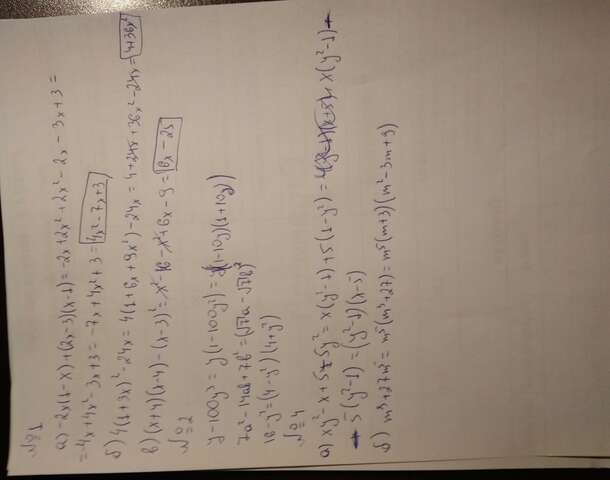 №1
а) -2x(1-x)+(2x-3)(x-1)=-2x+2x²+2x²-2x-3x+3=
=-4x+4x²-3x+3=-7x+4x²+3=4x²-7x+3
б) 4(1+3x)²-24x=4(1+6x+9x²)-24x=4+24x+36x²-24x=4+36x²
в) (x+4)(x-4)-(x-3)²=x²-16-x²+6x-9=6x-25
№2
y-100y³=y(1-100y²)=y(1-10y)(1+10y)
7a²-14ab+7b²=(√7a-√7b)²
16-y⁴=(4-y²)(4+y²)
№4
а) xy²-x+5-5y²=x(y²-1)+5(1-y²)=x(y²-1)-
5(y²-1)=(y²-1)(x-5)
б) m⁸+27m⁵=m⁵(m³+27)=m⁵(m+3)(m²-3m+9)